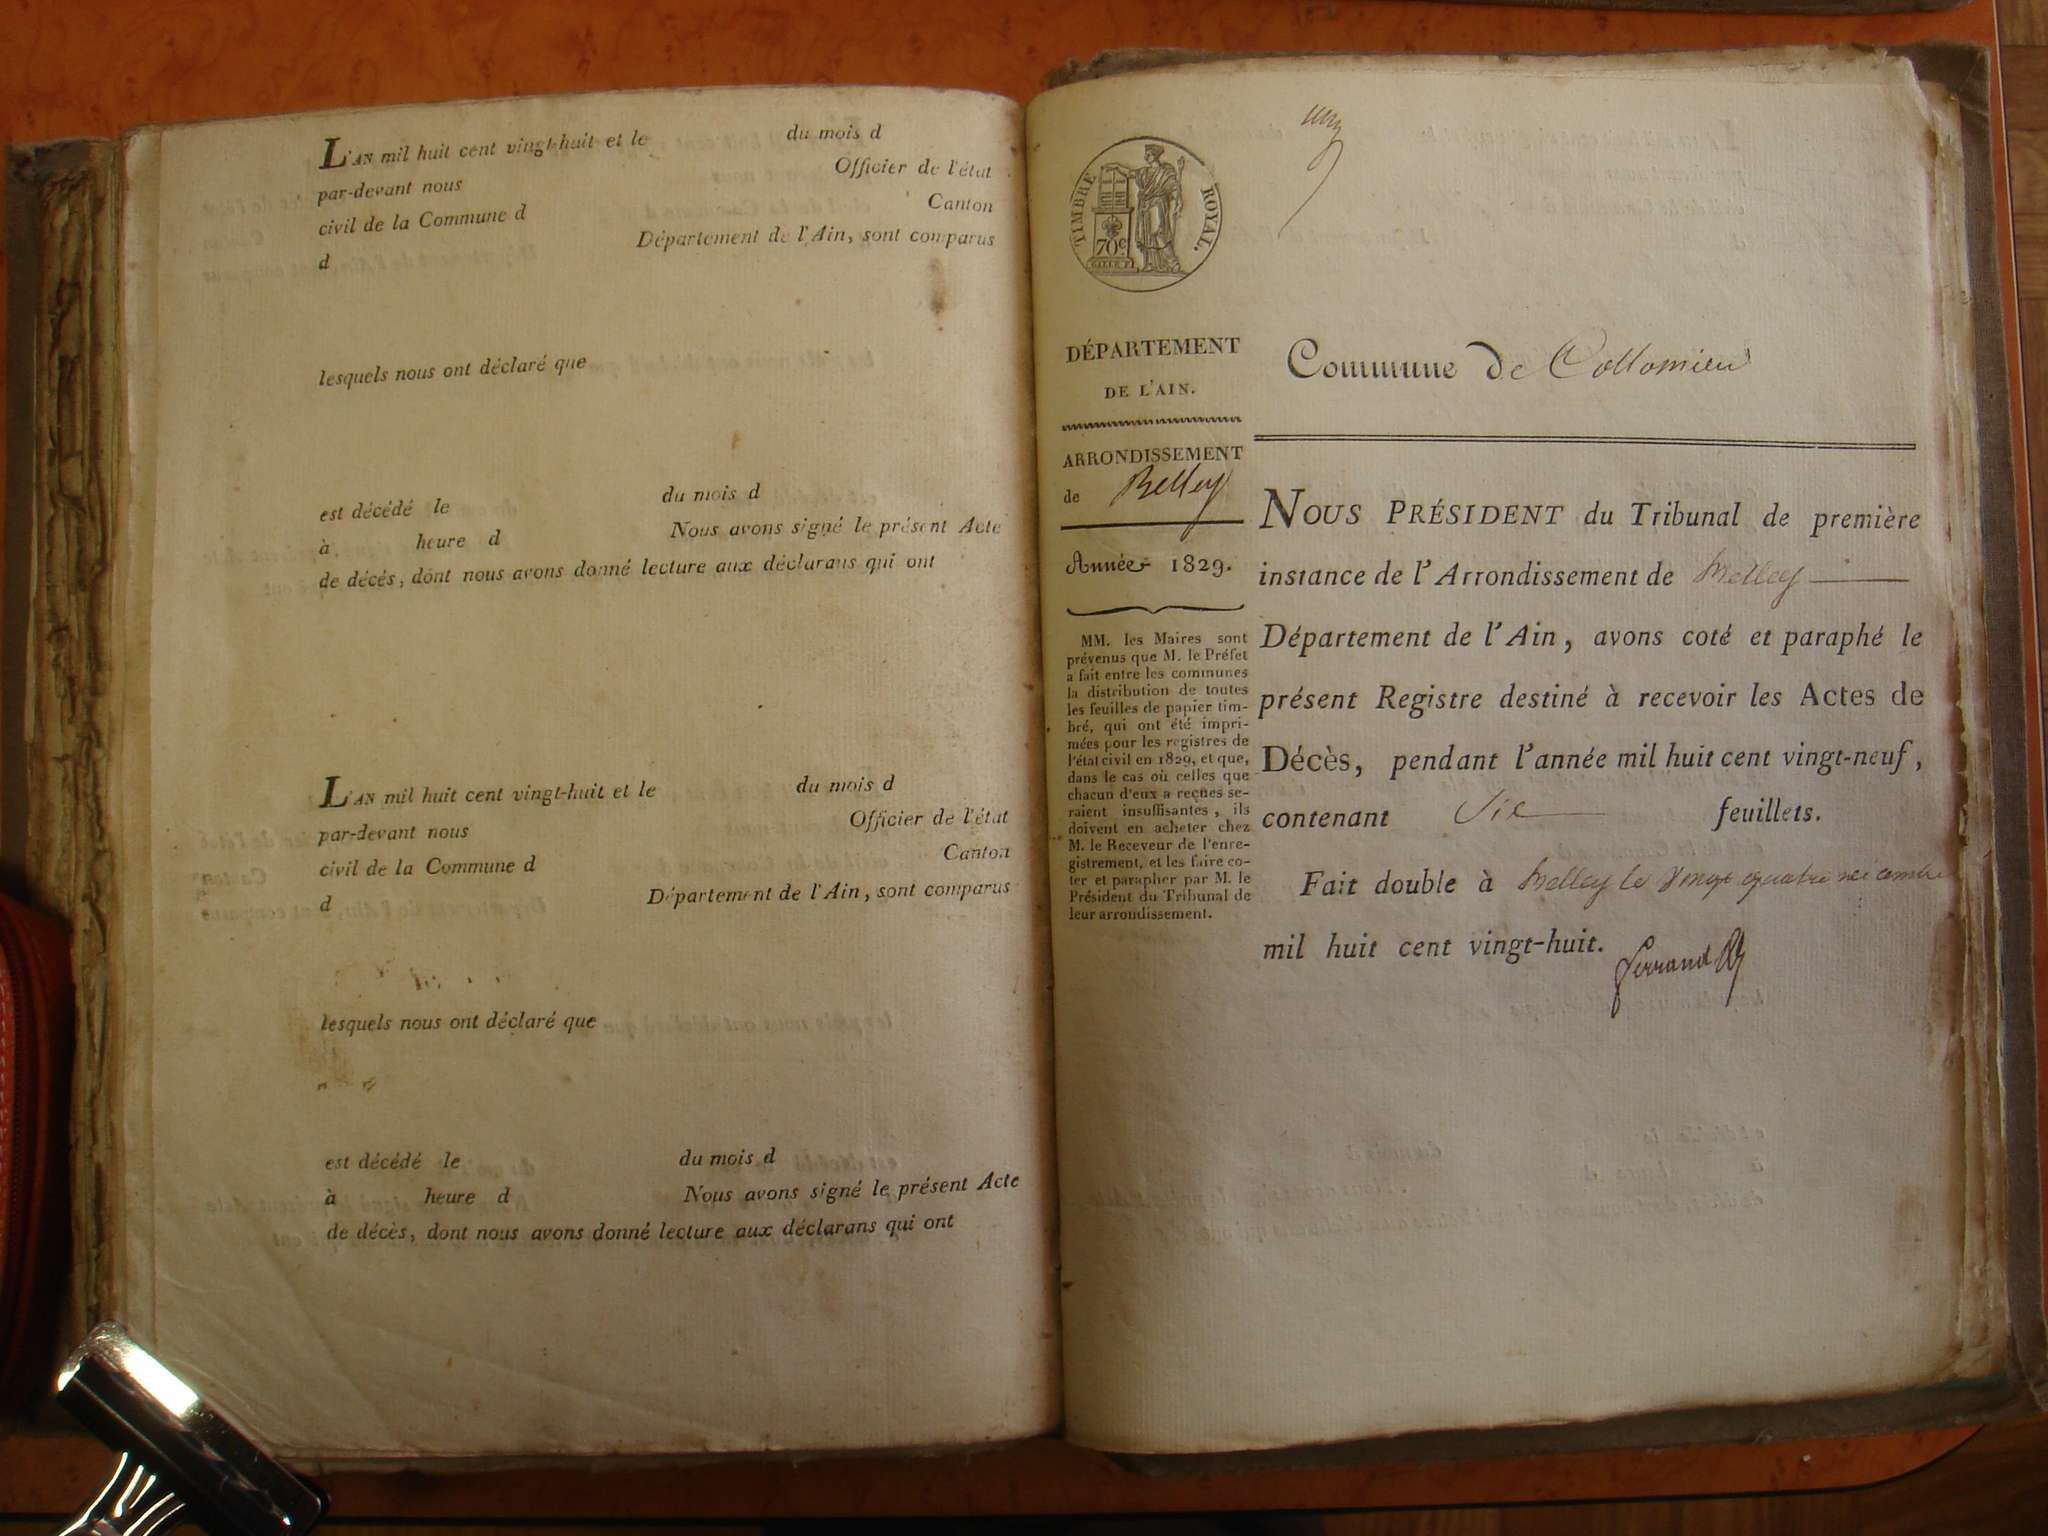 L'AN mil huit cent vingt-huit et le du mois d
par-devant nous Officier de l'état
civil de la Commune d Canton
d Département de l'Ain, sont comparus
lesquels nous ont déclaré que
est décédé le du mois d
à heure d Nous avons signé le présent Acte
de décés, dont nous avons donné lecture aux déclarans qui ont
L'AN mil huit cent vingt-huit et le du mois d
par-devant nous Officier de l'état
civil de la Commune d Canton
d Département de l'Ain, sont comparus
lesquels nous ont déclaré que
est décédé le du mois d
à heure d Nous avons signé le présent Acte
de décès, dont nous avons donné lecture aux déclarans qui ont
TIMBRE ROYAL.
70c
DÉPARTEMENT
DE L'AIN.
ARRONDISSEMENT
de Belley
Année 1829.
MM. les Maires sont
prévenus que M. le Préfet
a fait entre les communes
la distribution de toutes
les feuilles de papier tim-
bré, qui ont été impri-
mées pour les registres de
l'état civil en 1829, et que,
dans le cas où celles que
chacun d'eux a reçues se-
raient insuffisantes, ils
doivent en acheter chez
M. le Receveur de l'enre-
gistrement, et les faire co-
ter et parapher par M. le
Président du Tribunal de
leur arrondissement.
Commune de Collomieu
NOUS PRÉSIDENT du Tribunal de première
instance de l'Arrondissement de Belley
Département de l'Ain, avons coté et paraphé le
présent Registre destiné à recevoir les Actes de
Décès, pendant l'année mil huit cent vingt-neuf,
contenant Six feuillets.
Fait double à Belley le vingt quatre
mil huit cent vingt-huit.
Ferrand